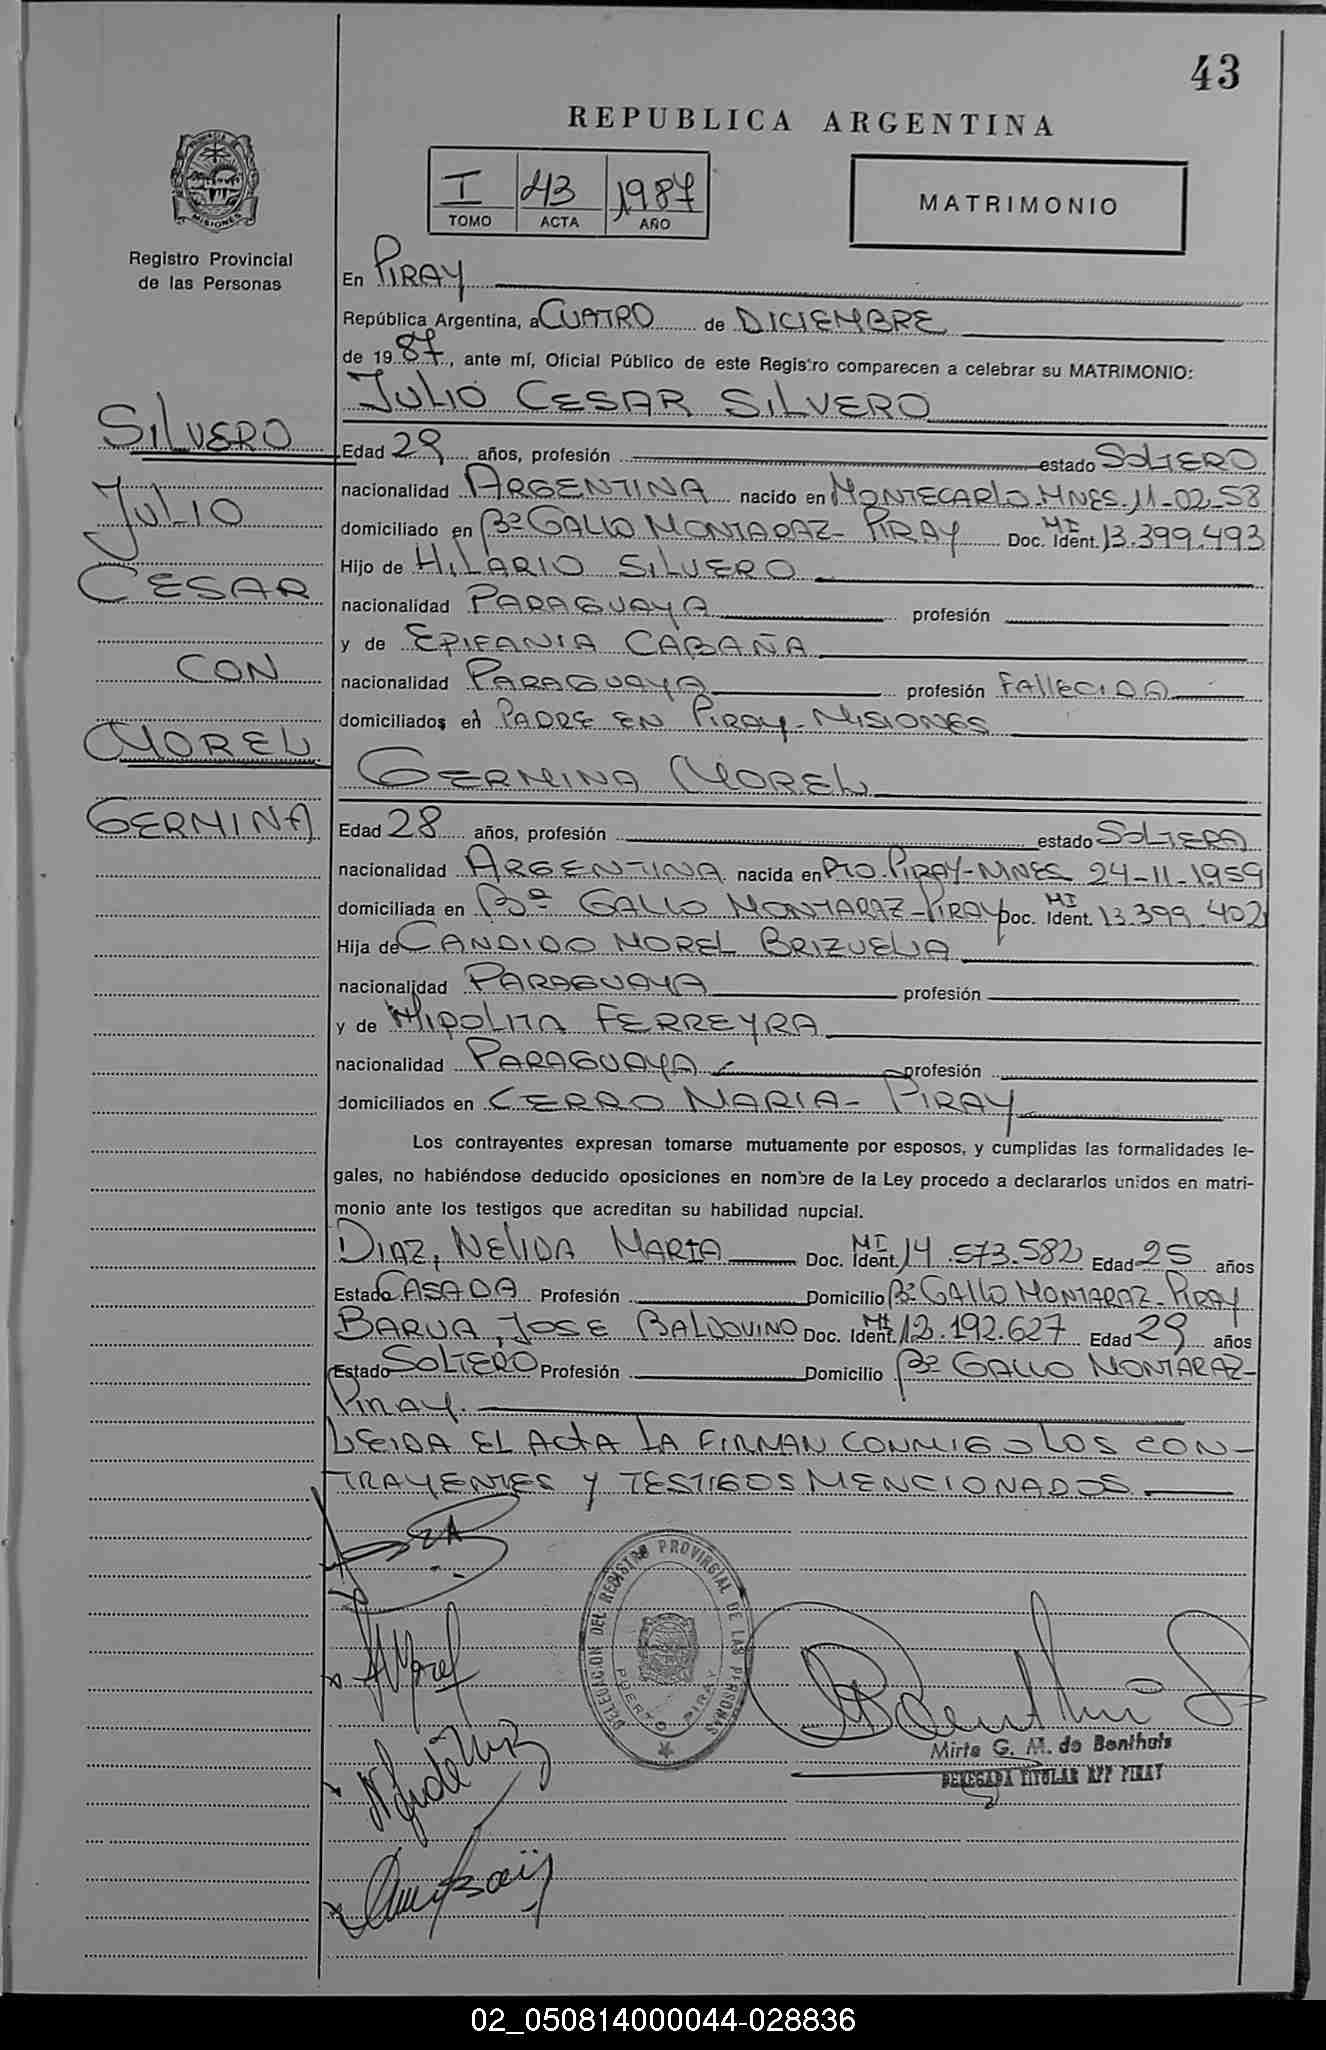 43
REPUBLICA ARGENTINA
I 43 1987
TOMO ACTA AÑO
MATRIMONIO
MISIONES
Registro Provincial
de las Personas
En PIRAY
República Argentina, a CUATRO de DICIEMBRE
de 1987, ante mí, Oficial Público de este Registro comparecen a celebrar su MATRIMONIO:
JULIO CESAR SILVERO
SILVERO
JULIO
CESAR
CON
MOREL
GERMINA
Edad 29 años, profesión estado SOLTERO
nacionalidad ARGENTINA nacido en MONTECARLO. MNES. 11-02-58
domiciliado en Bº GALLO MONTARAZ- PIRAY Doc. Ident. MI 13.399.493
Hijo de HILARIO SILVERO
nacionalidad PARAGUAYA profesión
y de EPIFANIA CABAÑA
nacionalidad PARAGUAYA profesión FALLECIDA
domiciliados en PADRE EN PIRAY-MISIONES
GERMINA MOREL
Edad 28 años, profesión estado SOLTERA
nacionalidad ARGENTINA nacida en PTO. PIRAY-MNES 24-11-1959
domiciliada en Bº GALLO MONTARAZ-PIRAY Doc. Ident. MI 13.399.402
Hija de CANDIDO MOREL BRIZUELA
nacionalidad PARAGUAYA profesión
y de HIPOLITA FERREYRA
nacionalidad PARAGUAYA profesión
domiciliados en CERRO MARIA- PIRAY
Los contrayentes expresan tomarse mutuamente por esposos, y cumplidas las formalidades le-
gales, no habiéndose deducido oposiciones en nombre de la Ley procedo a declararlos unidos en matri-
monio ante los testigos que acreditan su habilidad nupcial.
DIAZ, NELIDA MARIA Doc. Ident. MI 14.573.582 Edad 25 años
Estado CASADA Profesión Domicilio Bº GALLO MONTARAZ-PIRAY
BARUA, JOSE BALDOVINO Doc. Ident. MI 12.192.627 Edad 29 años
Estado SOLTERO Profesión Domicilio Bº GALLO MONTARAZ-
PIRAY.
LEIDA EL ACTA LA FIRMAN CONMIGO LOS CON-
TRAYENTES Y TESTIGOS MENCIONADOS
DELEGACION DEL REGISTRO PROVINCIAL DE LAS PERSONAS
PUERTO PIRAY
Morel
Mirta G. M. de Benthuis
DELEGADA TITULAR RPP PIRAY
02_050814000044-028836